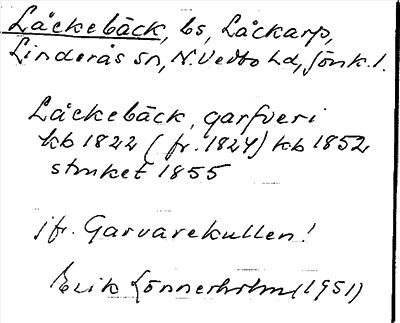 Låckebäck, bs, Låckarp,
Linderås sn, N. Vedbo hd, Jönk. l.
Låckebäck, garfveri
kb 1822 (fr. 1824) kb 1852
struket 1855
jfr. Garvarekullen!
Erik Lönnerholm (1951)